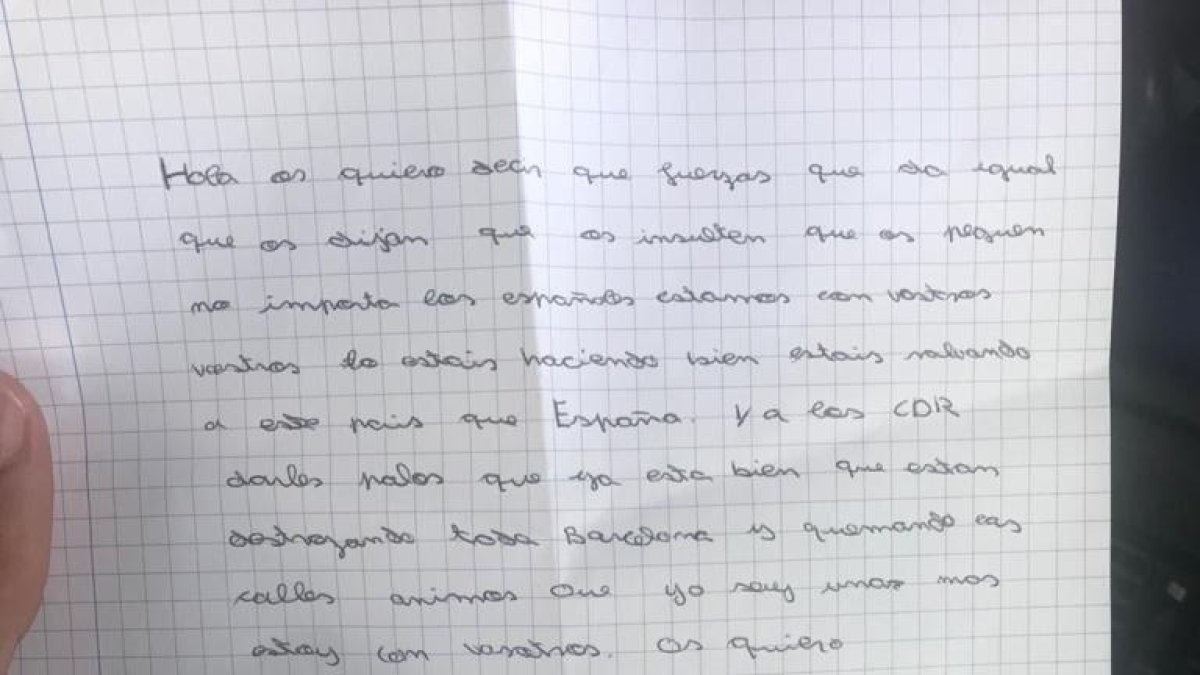 Hola os quiero decir que fuerzas que da igual
que os dijan que os insulten que os peguen
no importa los españoles estamos con vostros
vostros lo estais haciendo bien estais salvando
a este pais que España. Y a los CDR
darles palos que ya esta bien que estan
destrozando toda Barcelona y quemando las
calles animos que yo soy unas mas
estoy con vosotros. Os quiero